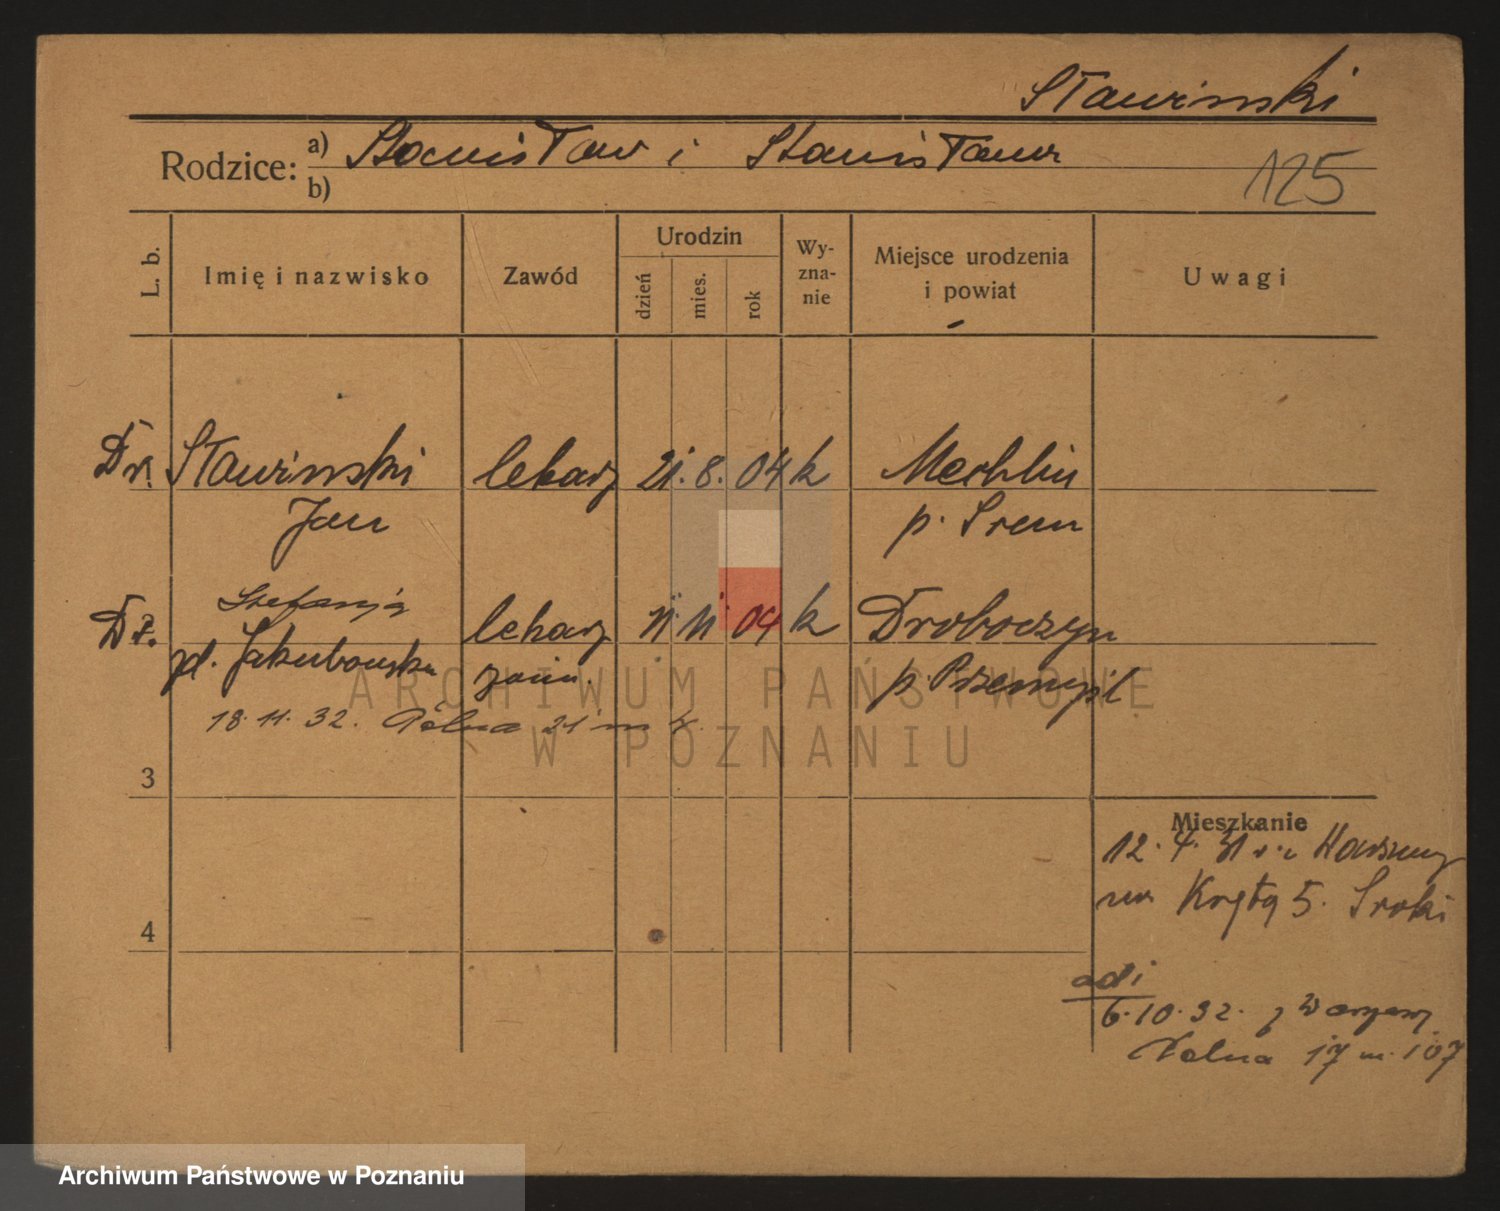 Sławinski
Rodzice: a) Stanisław i Stanisława
b)
125
L. b.
Imię i nazwisko
Zawód
Urodzin
dzień
mies.
rok
Wy-
zna-
nie
Miejsce urodzenia
i powiat
Uwagi
Dr. Sławinski lekarz 21. 8. 04 k Mechlin
Jan p. Srem
Stefanja
Dr. lekarz 11 11 04 k Droboczyn
zd. Jakubowska p. Przemyśl
18. 11. 32. Polna 21 m
3
4
Mieszkanie
12. 4. 31
na Krętą 5. Sroki
adi
6. 10. 32. z Warszawy
Polna 17 m. 107
ARCHIWUM PAŃSTWOWE
W POZNANIU
Archiwum Państwowe w Poznaniu